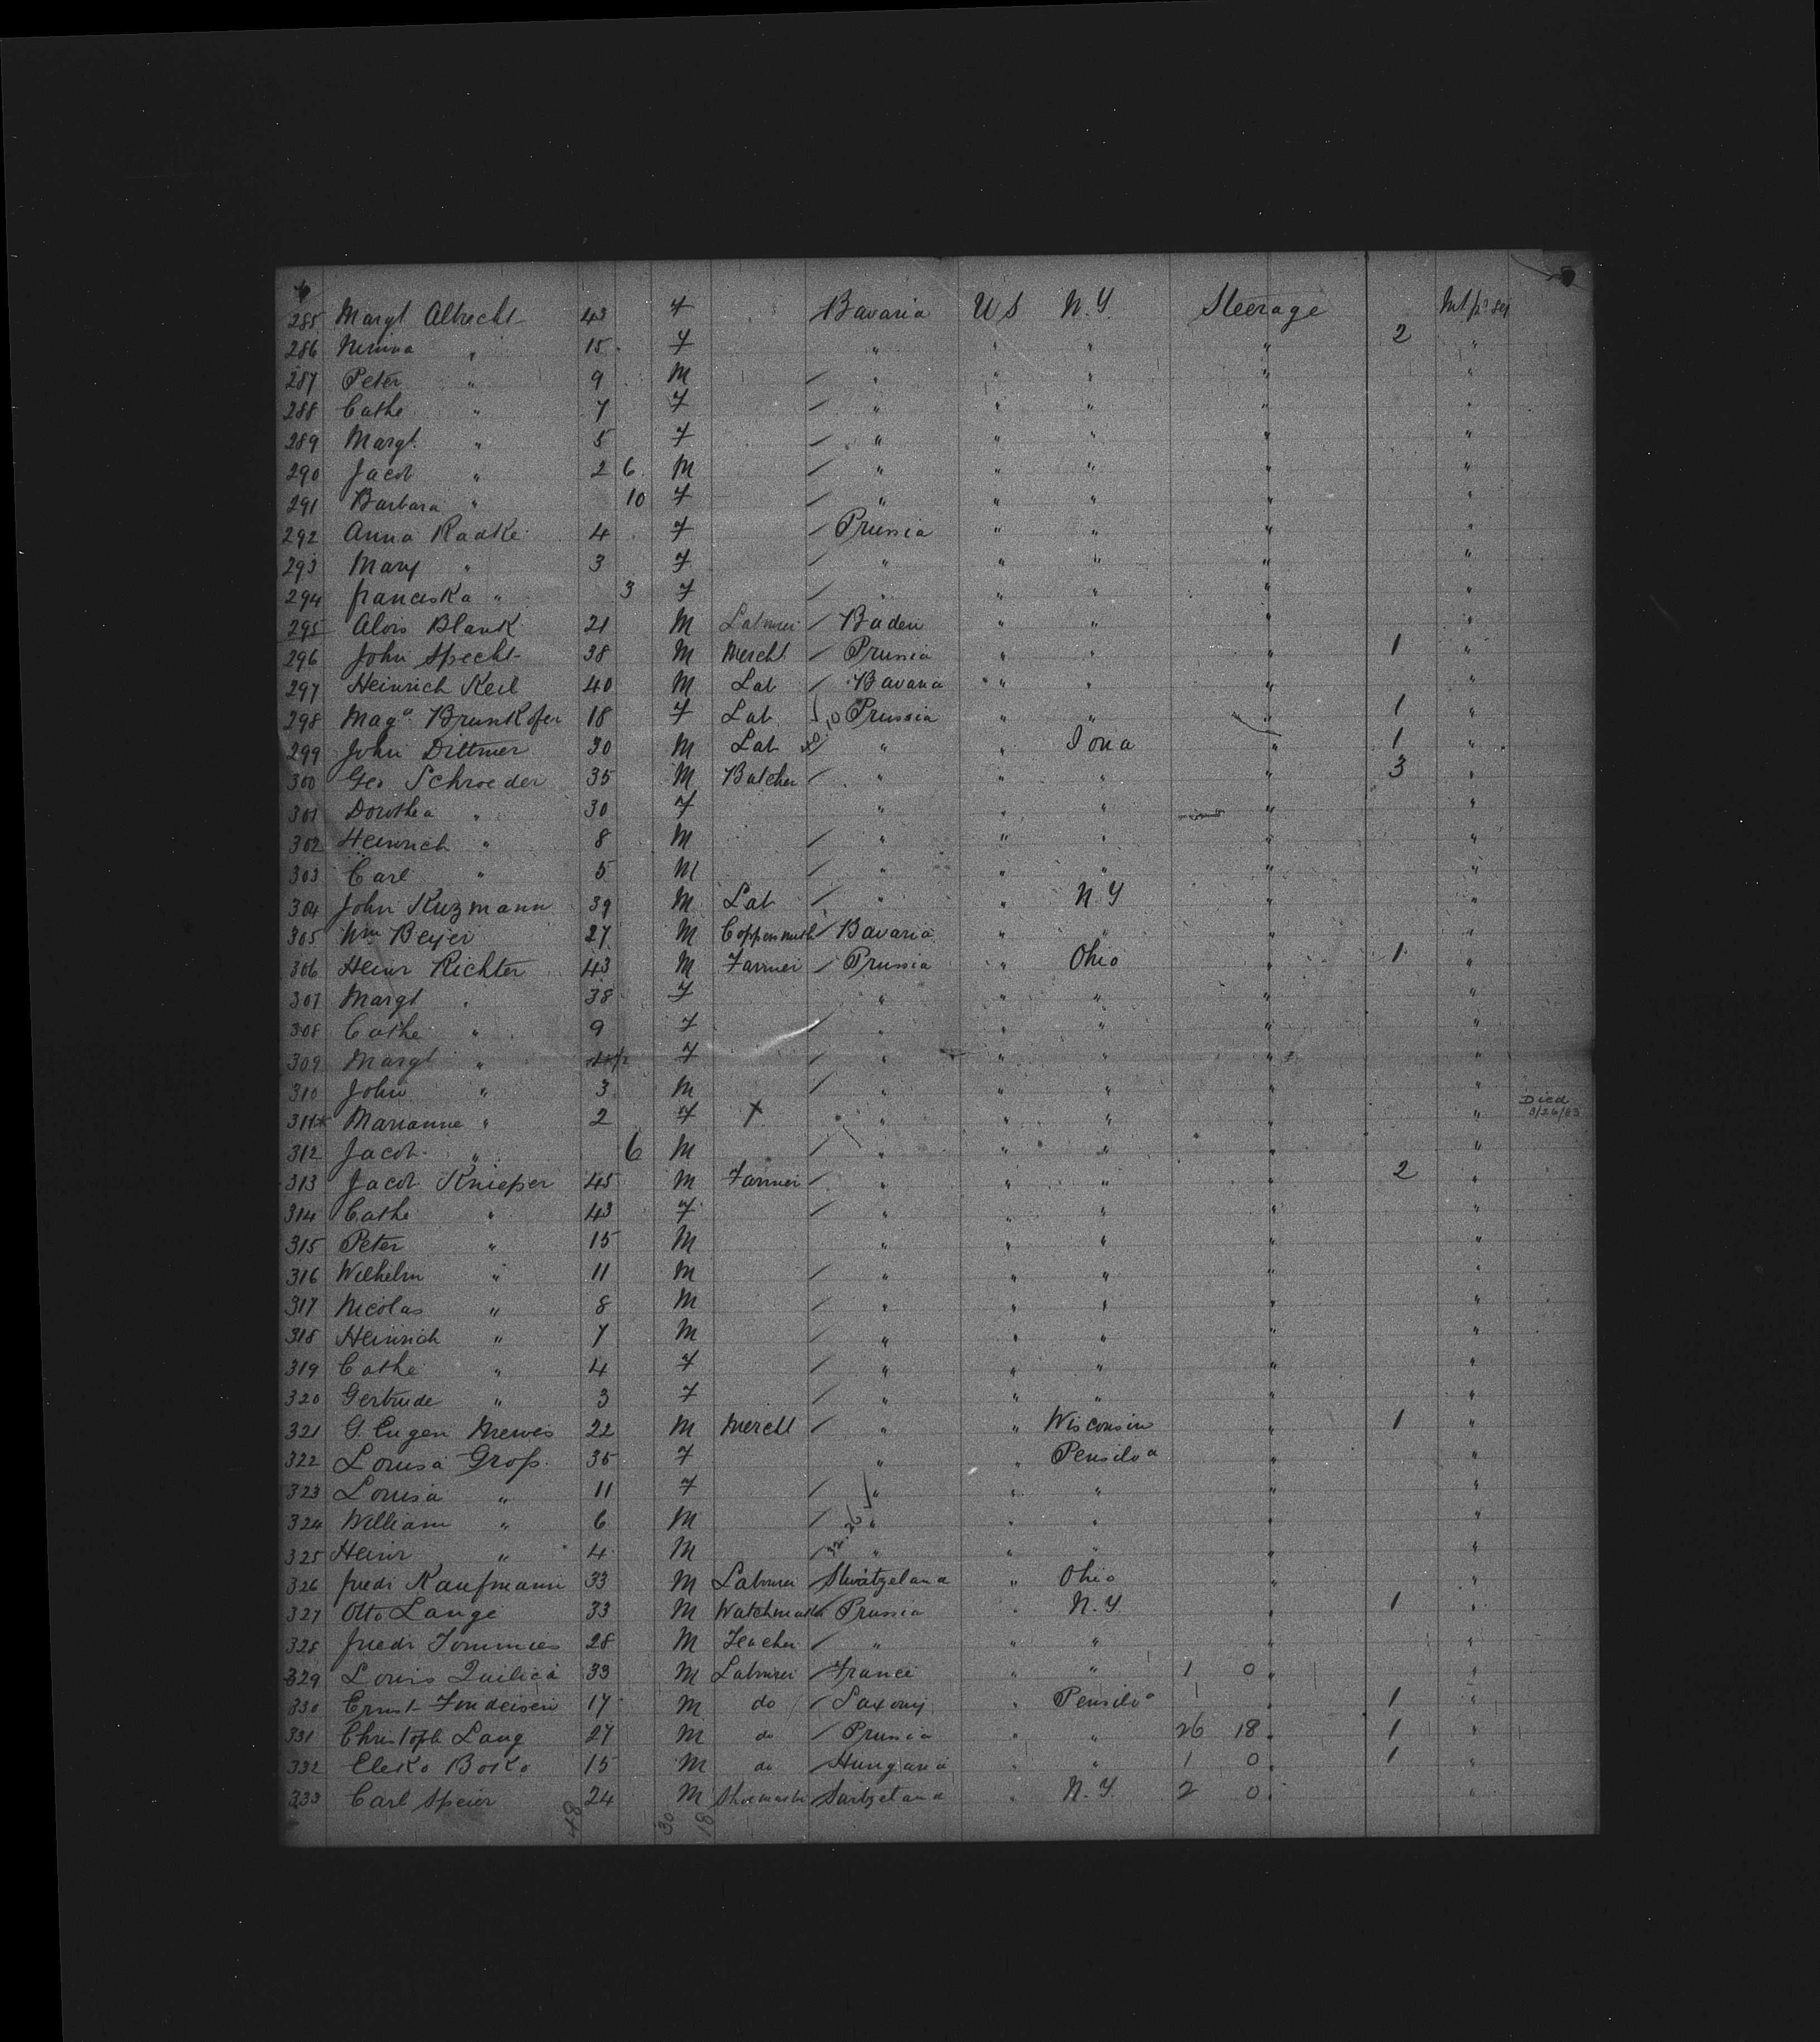 285 Margt Albrecht 43 F Bavaria U S N.Y. Steerage
286 " 15 F " " " " 2 "
287 Peter " 9 M " " " " "
288 Cathe " 7 F " " " " "
289 Margt " 5 F " " " " "
290 Jacob " 2 6 M " " " " "
291 Barbara " 10 F " " " " "
292 Anna Radke 4 F Prussia " " " "
293 Mary " 3 F " " " " "
294 Franciska " 3 F " " " " "
295 Alois Blank 21 M Labourer Baden " " " "
296 John Specht 38 M Mercht Prussia " " " 1 "
297 Heinrich Keil 40 M Lab Bavaria " " " "
298 Maga Brunkofer 18 F Lab Prussia " " " 1 "
299 John Dittmer 30 M Lab " " Iowa " 1 "
300 Geo Schroeder 35 M Butcher " " " " 3 "
301 Dorothea " 30 F " " " " "
302 Heinrich " 8 M " " " " "
303 Carl " 5 M " " " " "
304 John Kuzmann 39 M Lab " " N Y " "
305 Wm Beyer 27 M Coppersmith Bavaria " " " "
306 Heinr Richter 43 M Farmer Prussia " Ohio " 1 "
307 Margt " 38 F " " " " "
308 Cathe " 9 F " " " " "
309 Margt " F " " " " "
310 John " 3 M " " " " "
311 Marianne " 2 F X " " " " " Died
312 Jacob " 6 M " " " " "
313 Jacob Knieper 45 M Farmer " " " " 2 "
314 Cathe " 43 F " " " " "
315 Peter " 15 M " " " " "
316 Wilhelm " 11 M " " " " "
317 Nicolas " 8 M " " " " "
318 Heinrich " 7 M " " " " "
319 Cathe " 4 F " " " " "
320 Gertrude " 3 F " " " " "
321 G. Eugen Mewes 22 M Mercht " " Wisconsin " 1 "
322 Louisa Groß 35 F " " Pensilva " "
323 Louisa " 11 F " " " " "
324 William " 6 M " " " " "
325 Heinr " 4 M " " " " "
326 Friedr Kaufmann 33 M Labourer Switzeland " Ohio " "
327 Otto Lange 33 M Watchmaker Prussia " N.Y. " 1 "
328 Friedr Tommies 28 M Teacher " " " " "
329 Louis Quilica 33 M Labourer France " " 1 0 " "
330 Ernst 17 M do Saxony " Pensilva 1 " 1 "
331 Christoph Lang 27 M do Prussia " " 26 18 " 1 "
332 Eleko Boko 15 M do Hungaria " " 1 0 " 1 "
333 Carl Speier 24 M Shoemaker Switzeland " N.Y. 2 0 " "
48 30 18